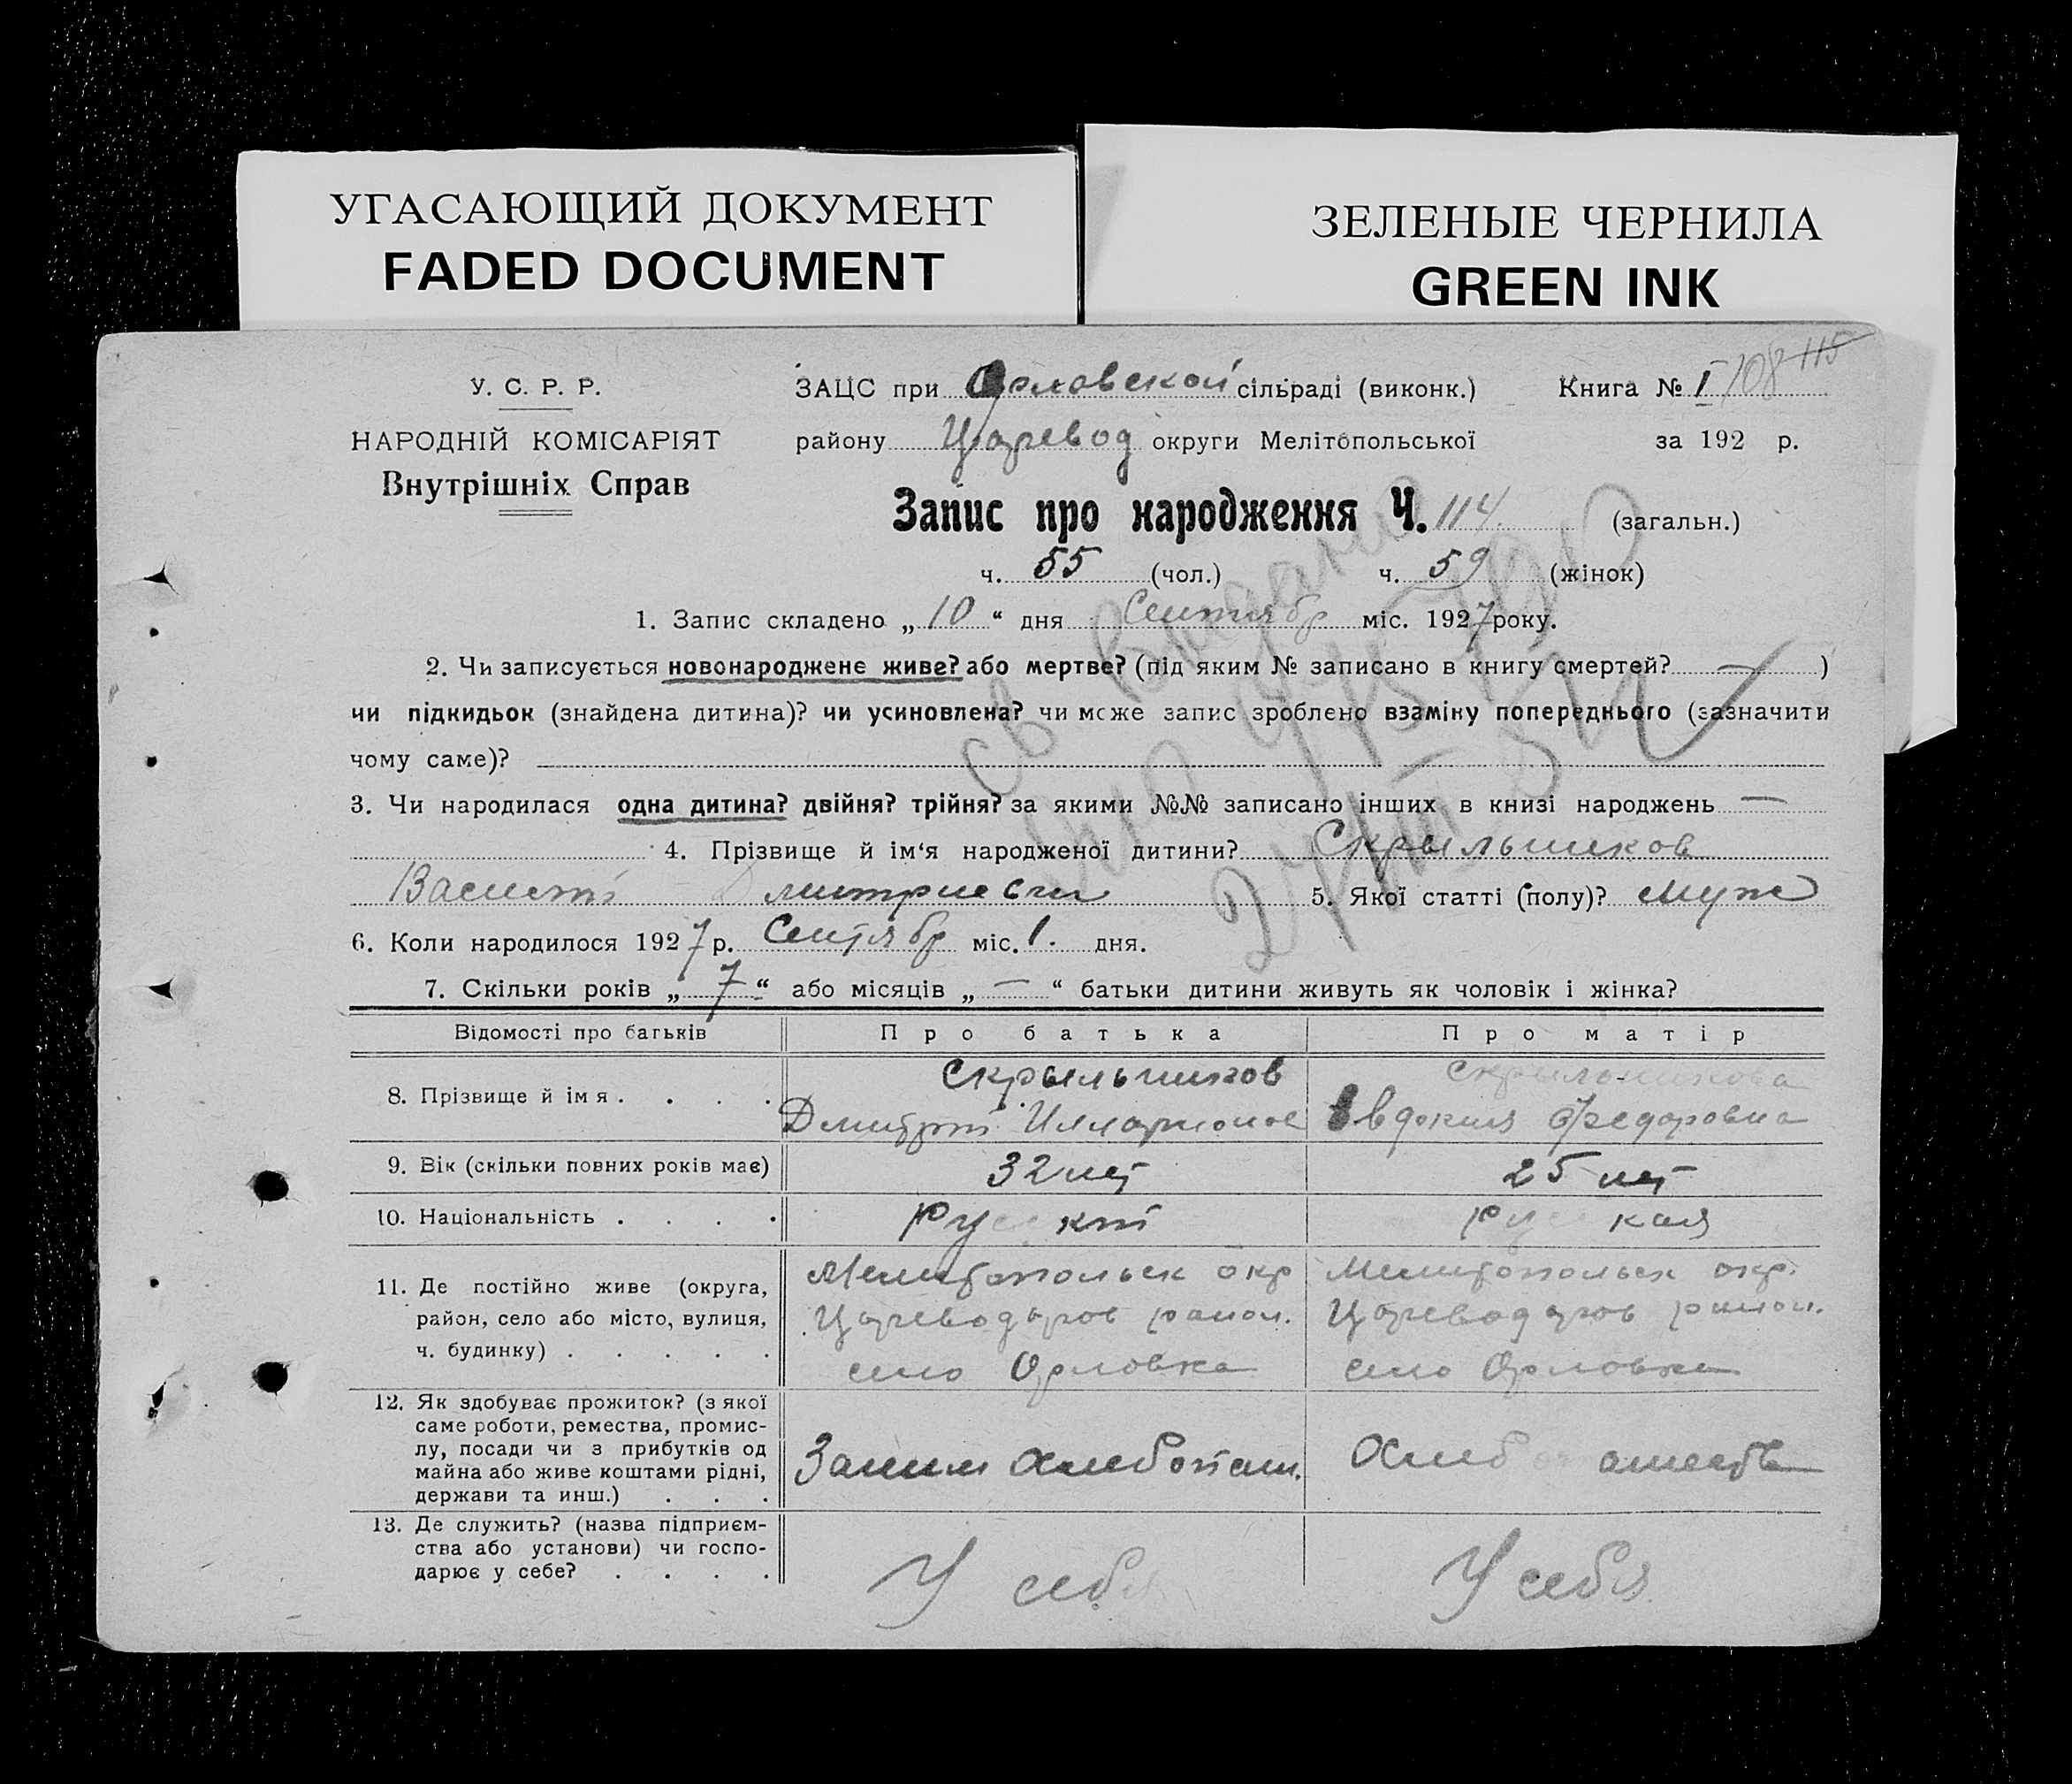 УГАСАЮЩИЙ ДОКУМЕНТ
FADED DOCUMENT
ЗЕЛЕНЫЕ ЧЕРНИЛА
GREEN INK
У. С. Р. Р.
НАРОДНІЙ КОМІСАРІЯТ
Внутрішніх Справ
ЗАЦС при Орловской сільраді (виконк.) Книга № I 108 115
району Царевод округи Мелітопольської за 192 р.
Запис про народження Ч. 114 (загальн.)
ч. 55 (чол.) ч. 59 (жінок)
1. Запис складено „ 10 “ дня Сентябр міс. 1927 року.
2. Чи записується новонароджене живе? або мертве? (під яким № записано в книгу смертей? — )
чи підкидьок (знайдена дитина)? чи усиновлена? чи може запис зроблено взаміну попереднього (зазначити
чому саме)?
3. Чи народилася одна дитина? двійня? трійня? за якими №№ записано інших в книзі народжень —
4. Прізвище й ім‘я народженої дитини? Скрыльников
Василий Дмитриевич 5. Якої статті (полу)? муж
6. Коли народилося 1927 р. Сентябр міс. 1. дня.
7. Скільки років „ 7 “ або місяців „ — “ батьки дитини живуть як чоловік і жінка?
Відомості про батьків Про батька Про матір
8. Прізвище й імя . . . . Скрыльников Скрыльникова
Дмитрий Илларионов Евдокия Федоровна
9. Вік (скільки повних років має) 32 лет 25 лет
10. Національність . . . . Руский Руская
11. Де постійно живе (округа, Мелитопольск окр Мелитопольск окр.
район, село або місто, вулиця, Цареводаров район. Цареводаров район.
ч. будинку) . . . . . село Орловка село Орловка
12. Як здобуває прожиток? (з якої
саме роботи, ремества, промис-
лу, посади чи з прибутків од
майна або живе коштами рідні,
держави та инш.) . . .
Заним хлебопаш. Хлебопашества
13. Де служить? (назва підприєм-
ства або установи) чи госпо-
дарює у себе? . . . .
У себя У себя